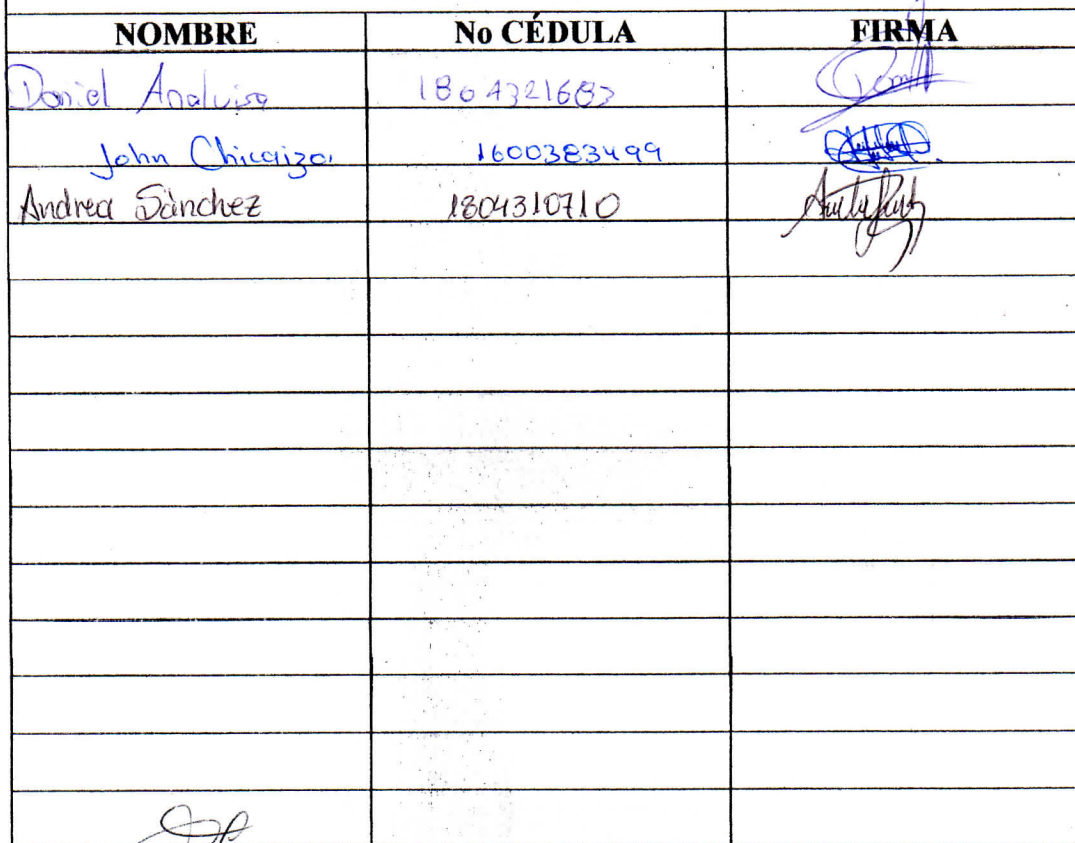 NOMBRE No CÉDULA FIRMA
Daniel Analuisa 1804321683
John Chicaiza 1600383499
Andrea Sánchez 1804310710